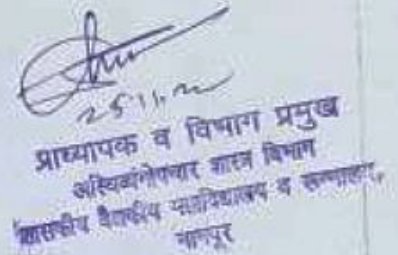 25.11.20
प्राध्यापक व विभाग प्रमुख
अस्थिव्यंगोपचार शास्त्र विभाग
शासकीय वैद्यकीय महाविद्यालय व रुग्णालय,
नागपूर